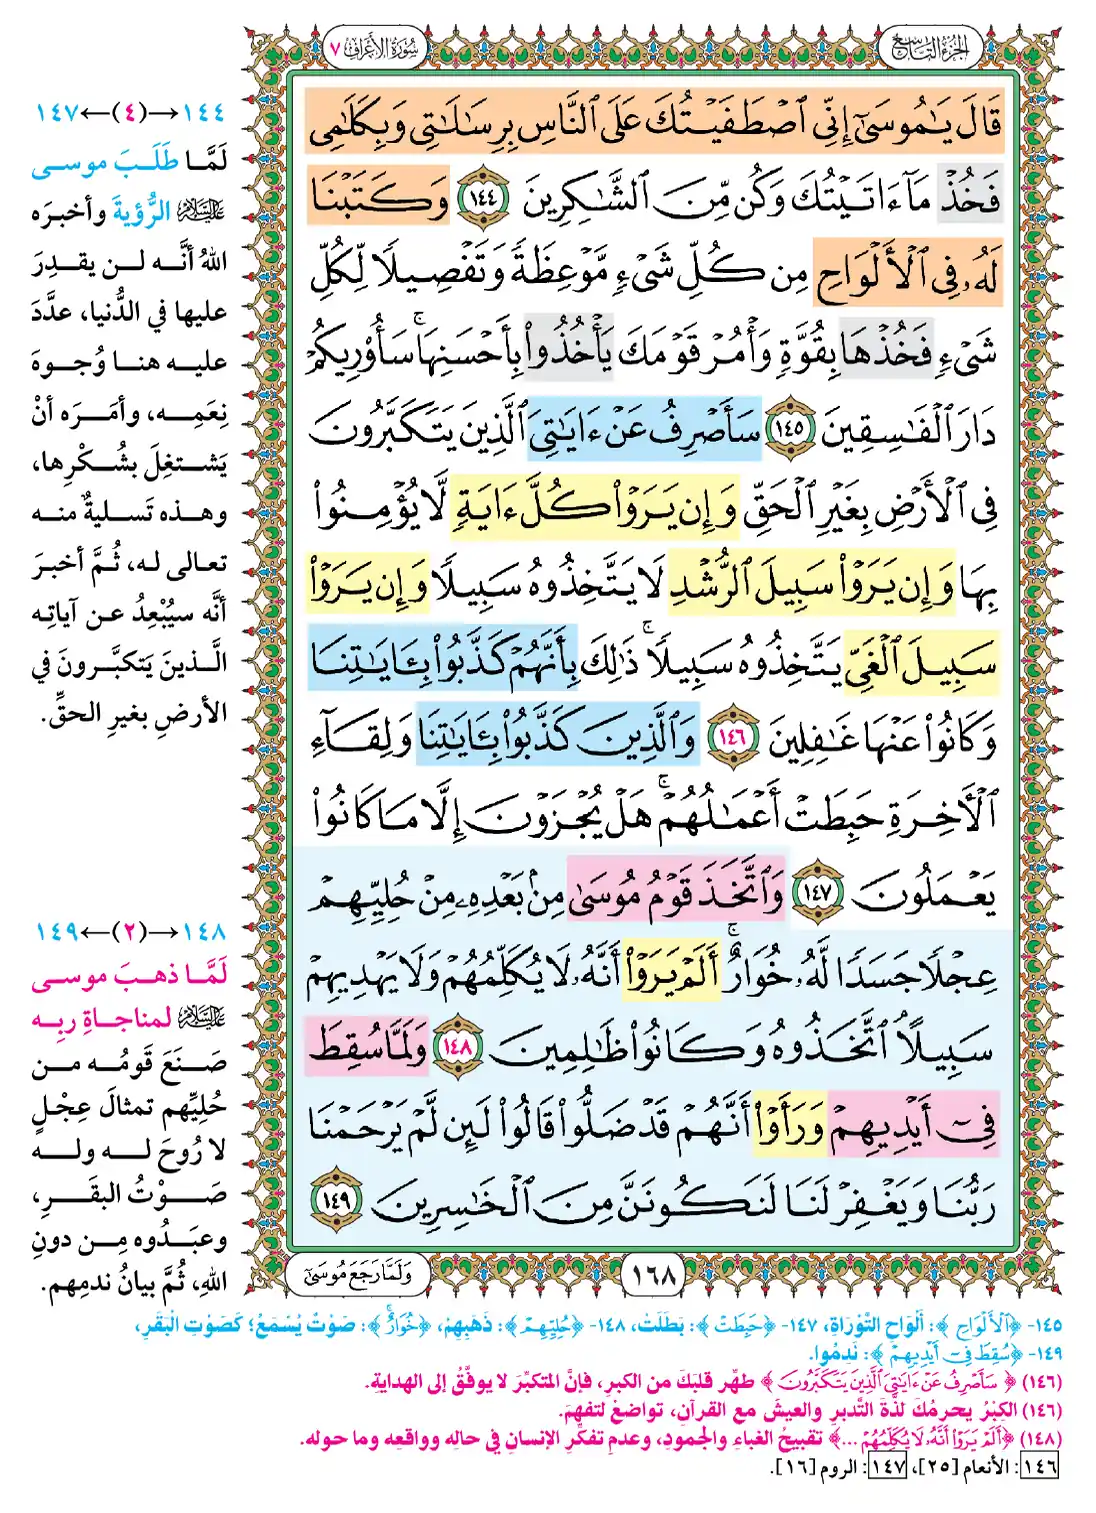 الجزء التاسع
سورة الأعراف ٧
قَالَ يَـٰمُوسَىٰٓ إِنِّى ٱصۡطَفَيۡتُكَ عَلَى ٱلنَّاسِ بِرِسَـٰلَـٰتِى وَبِكَلَـٰمِى
فَخُذۡ مَآ ءَاتَيۡتُكَ وَكُن مِّنَ ٱلشَّـٰكِرِينَ ١٤٤ وَكَتَبۡنَا
لَهُۥ فِى ٱلۡأَلۡوَاحِ مِن كُلِّ شَىۡءٍ مَّوۡعِظَةً وَتَفۡصِيلًا لِّكُلِّ
شَىۡءٍ فَخُذۡهَا بِقُوَّةٍ وَأۡمُرۡ قَوۡمَكَ يَأۡخُذُواْ بِأَحۡسَنِهَاۚ سَأُوْرِيكُمۡ
دَارَ ٱلۡفَـٰسِقِينَ ١٤٥ سَأَصۡرِفُ عَنۡ ءَايَـٰتِىَ ٱلَّذِينَ يَتَكَبَّرُونَ
فِى ٱلۡأَرۡضِ بِغَيۡرِ ٱلۡحَقِّ وَإِن يَرَوۡاْ كُلَّ ءَايَةٍ لَّا يُؤۡمِنُواْ
بِهَا وَإِن يَرَوۡاْ سَبِيلَ ٱلرُّشۡدِ لَا يَتَّخِذُوهُ سَبِيلًا وَإِن يَرَوۡاْ
سَبِيلَ ٱلۡغَىِّ يَتَّخِذُوهُ سَبِيلًاۚ ذَٰلِكَ بِأَنَّهُمۡ كَذَّبُواْ بِـَٔايَـٰتِنَا
وَكَانُواْ عَنۡهَا غَـٰفِلِينَ ١٤٦ وَٱلَّذِينَ كَذَّبُواْ بِـَٔايَـٰتِنَا وَلِقَآءِ
ٱلۡأَخِرَةِ حَبِطَتۡ أَعۡمَـٰلُهُمۡۚ هَلۡ يُجۡزَوۡنَ إِلَّا مَا كَانُواْ
يَعۡمَلُونَ ١٤٧ وَٱتَّخَذَ قَوۡمُ مُوسَىٰ مِنۢ بَعۡدِهِۦ مِنۡ حُلِيِّهِمۡ
عِجۡلًا جَسَدًا لَّهُۥ خُوَارٌۚ أَلَمۡ يَرَوۡاْ أَنَّهُۥ لَا يُكَلِّمُهُمۡ وَلَا يَهۡدِيهِمۡ
سَبِيلًاۘ ٱتَّخَذُوهُ وَكَانُواْ ظَـٰلِمِينَ ١٤٨ وَلَمَّا سُقِطَ
فِىٓ أَيۡدِيهِمۡ وَرَأَوۡاْ أَنَّهُمۡ قَدۡ ضَلُّواْ قَالُواْ لَئِن لَّمۡ يَرۡحَمۡنَا
رَبُّنَا وَيَغۡفِرۡ لَنَا لَنَكُونَنَّ مِنَ ٱلۡخَـٰسِرِينَ ١٤٩
١٦٨
وَلَمَّا رَجَعَ مُوسَىٰٓ
١٤٤→(٤)←١٤٧
لَمَّا طَلَبَ موسى
عليه السلام الرُّؤيةَ وأخبرَه
اللهُ أنَّه لن يقدِرَ
عليها في الدُّنيا، عدَّدَ
عليه هنا وُجوهَ
نِعَمِه، وأمَرَه أنْ
يَشتغِلَ بشُكْرِها،
وهذه تَسليةٌ منه
تعالى له، ثُمَّ أخبرَ
أنَّه سيُبْعِدُ عن آياتِه
الَّذينَ يَتكبَّرونَ في
الأرضِ بغيرِ الحقِّ.
١٤٨→(٢)←١٤٩
لَمَّا ذهبَ موسى
عليه السلام لمناجاةِ ربِه
صَنَعَ قَومُه من
حُلِيِّهم تمثالَ عِجْلٍ
لا رُوحَ له وله
صَوْتُ البقَرِ،
وعبَدُوه مِن دونِ
اللهِ، ثُمَّ بيانُ ندمِهم.
١٤٥- ﴿ٱلۡأَلۡوَاحِ﴾: أَلْوَاحِ التَّوْرَاةِ، ١٤٧- ﴿حَبِطَتۡ﴾: بَطَلَتْ، ١٤٨- ﴿حُلِيِّهِمۡ﴾: ذَهَبِهِمْ، ﴿خُوَارٌۚ﴾: صَوْتٌ يُسْمَعُ؛ كَصَوْتِ الْبَقَرِ،
١٤٩- ﴿سُقِطَ فِىٓ أَيۡدِيهِمۡ﴾: نَدِمُوا.
(١٤٦) ﴿سَأَصۡرِفُ عَنۡ ءَايَـٰتِىَ ٱلَّذِينَ يَتَكَبَّرُونَ﴾ طهِّر قلبَكَ من الكبرِ، فإنَّ المتكبِّرَ لا يوفَّقُ إلى الهدايةِ.
(١٤٦) الكِبْرُ يحرمُكَ لذَّةَ التَّدبرِ والعيشَ مع القرآنِ، تواضعْ لتفهمَ.
(١٤٨) ﴿أَلَمۡ يَرَوۡاْ أَنَّهُۥ لَا يُكَلِّمُهُمۡ ...﴾ تقبيحُ الغباءِ والجمودِ، وعدمِ تفكُّرِ الإنسانِ في حالِه وواقعِه وما حوله.
١٤٦: الأنعام [٢٥]، ١٤٧: الروم [١٦].